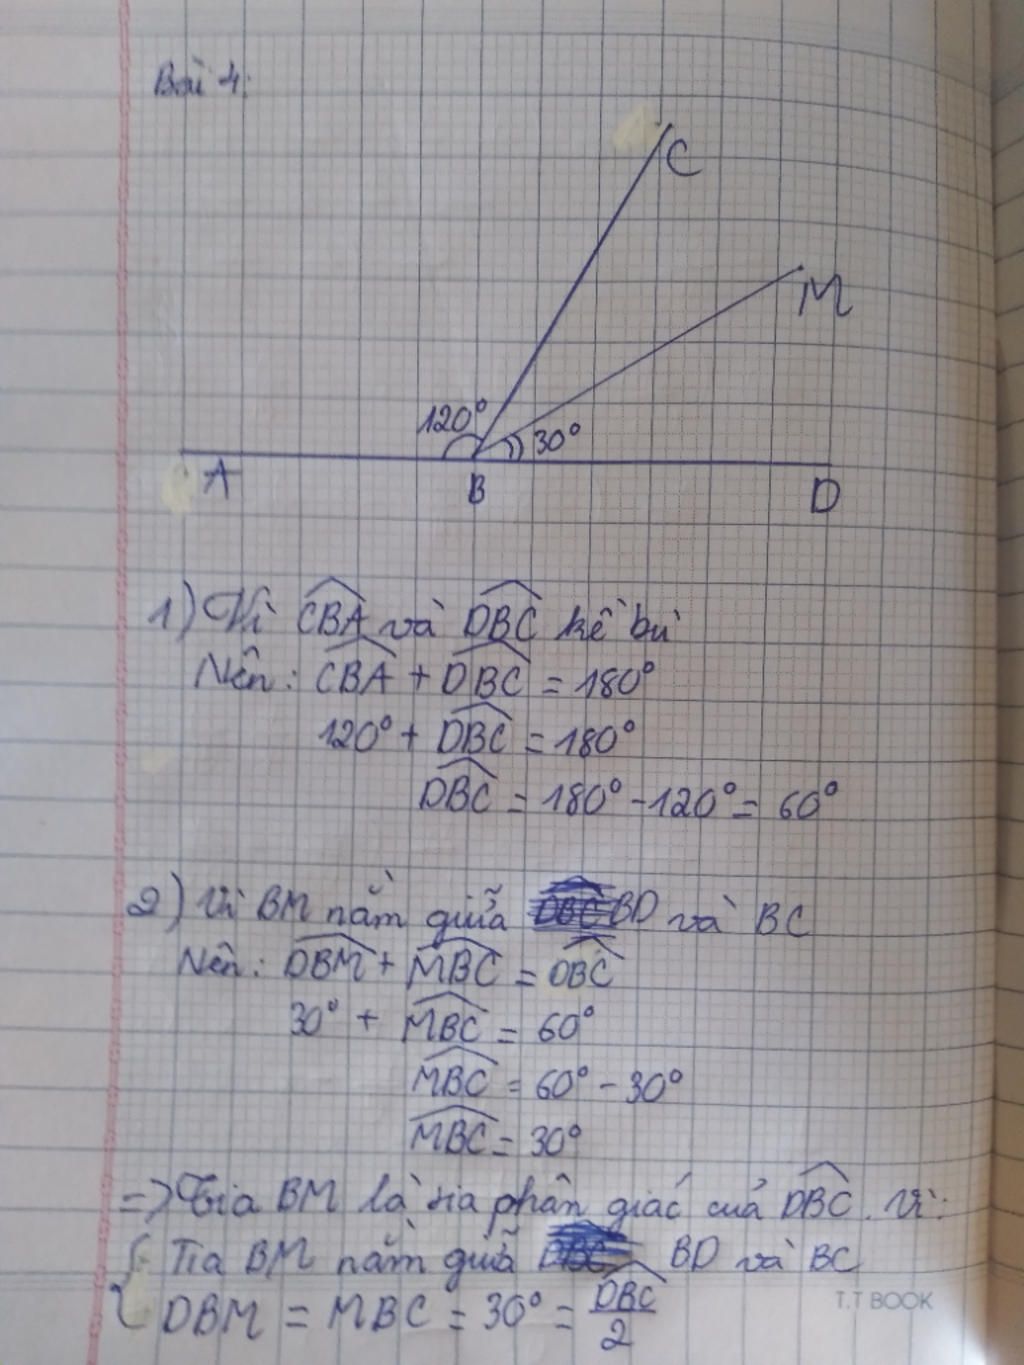 Bài 4:
C
M
120° 30°
A B D
1) Vì CBA và DBC kề bù
Nên: CBA + DBC = 180°
120° + DBC = 180°
DBC = 180° - 120° = 60°
2) Vì BM nằm giữa BD và BC
Nên: DBM + MBC = DBC
30° + MBC = 60°
MBC = 60° - 30°
MBC = 30°
=> Tia BM là tia phân giác của DBC. Vì:
{ Tia BM nằm giữa BD và BC
DBM = MBC = 30° = DBC/2
T.T BOOK